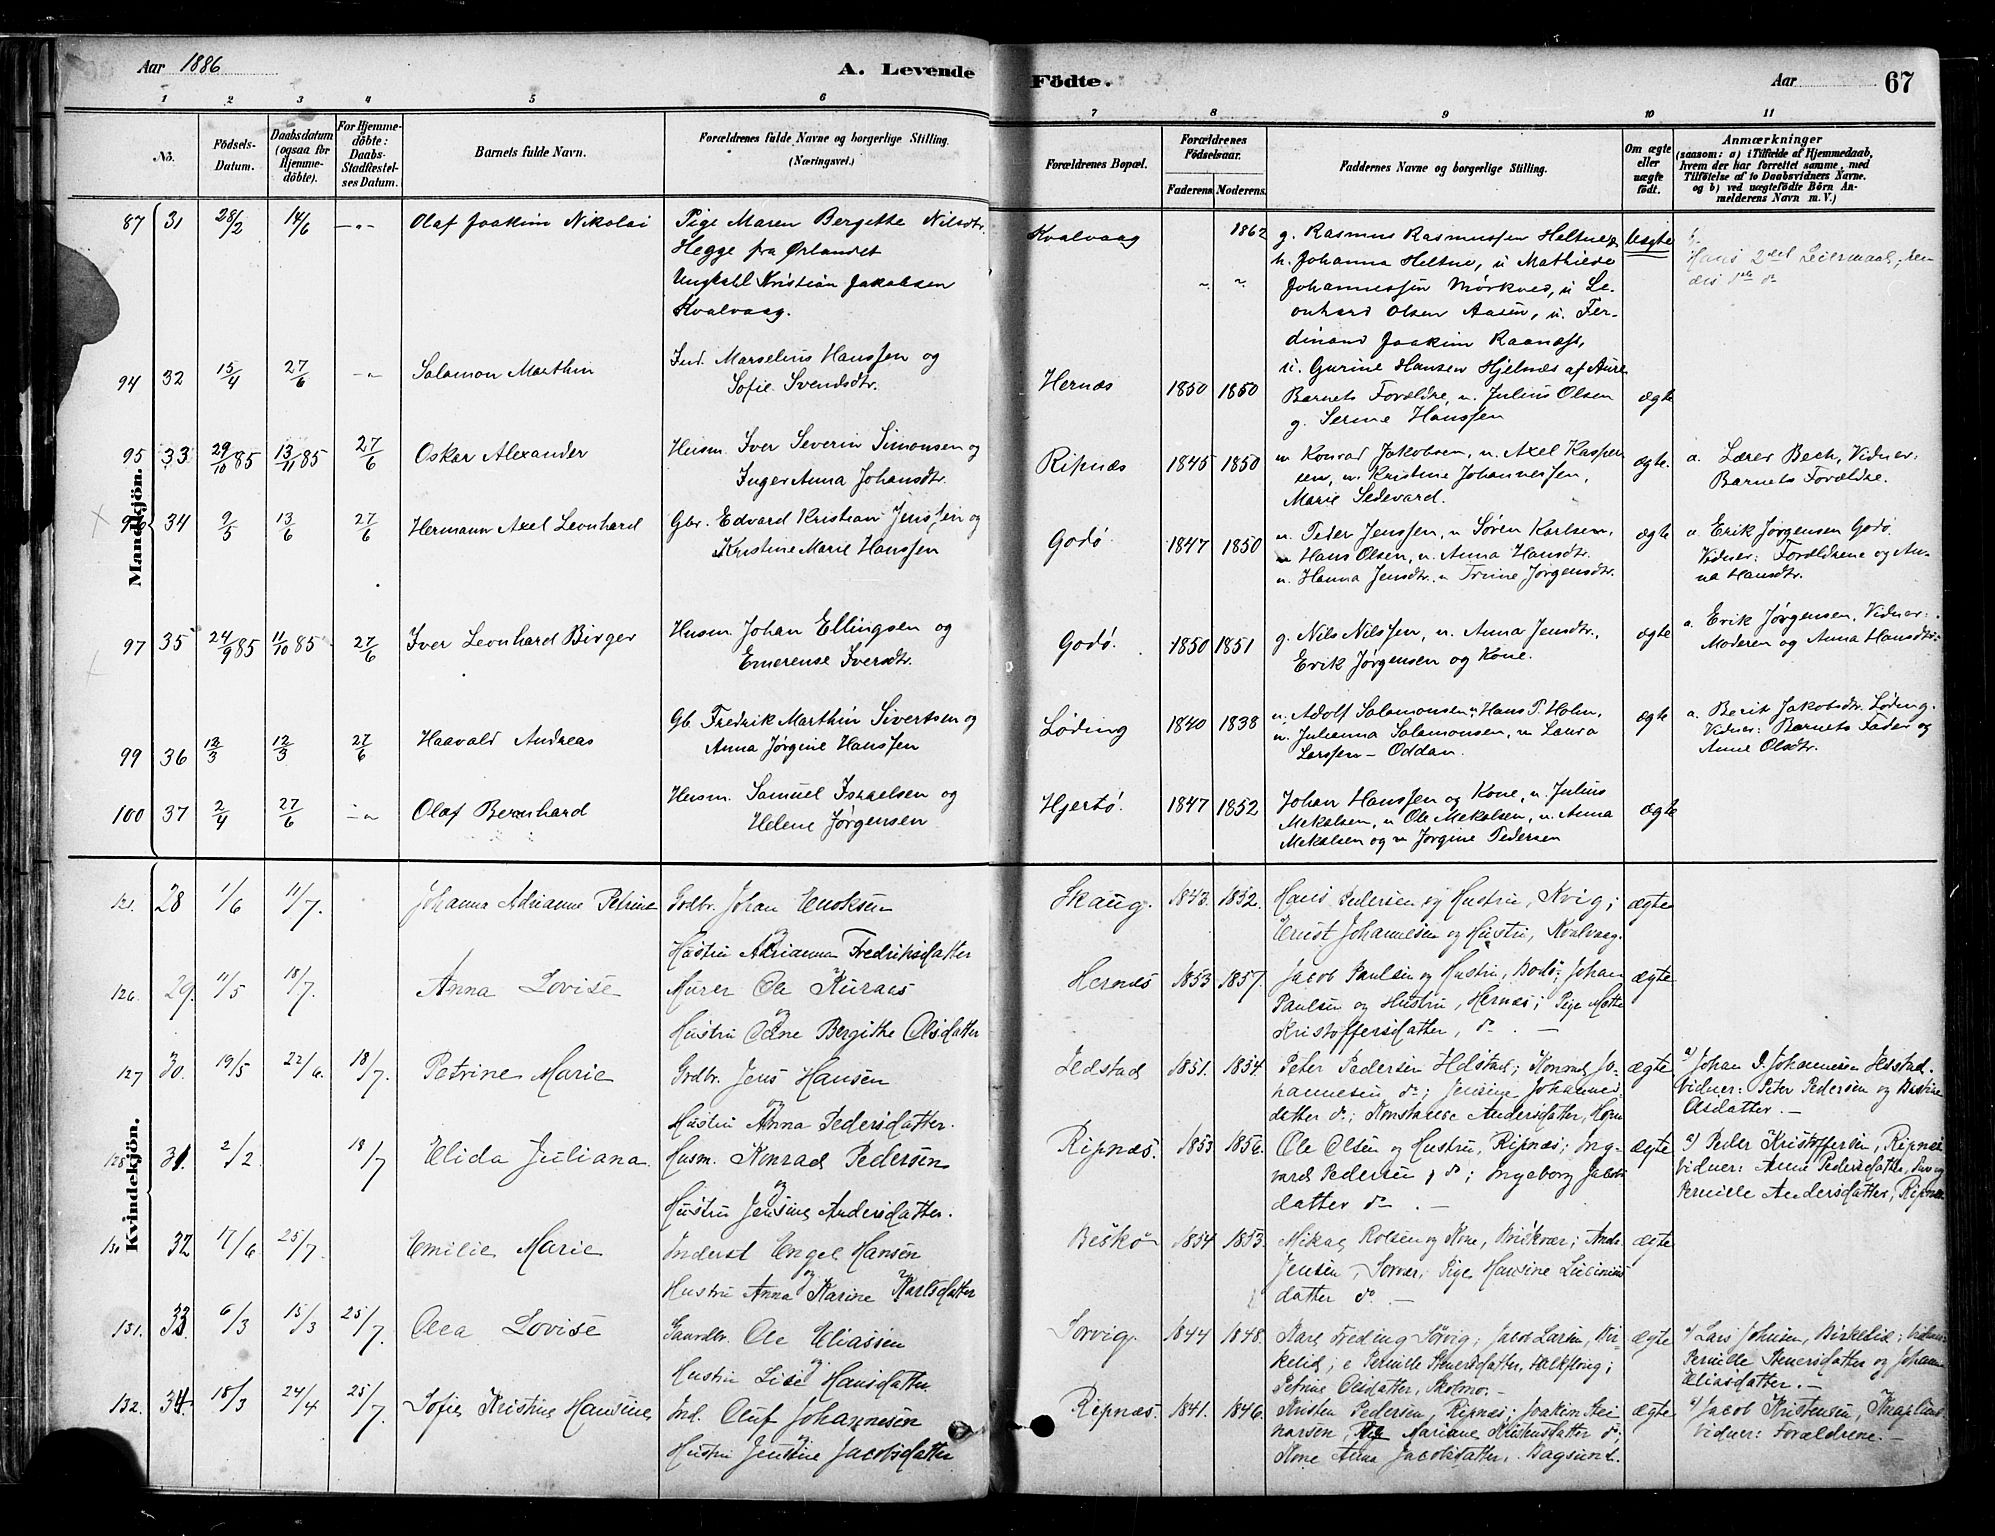 Aar 1886
A. Levende
Födte.
Aar
67
1 2 3 4 5 6 7 8 9 10 11
No.
Födsels-Datum.
Daabsdatum (ogsaa for Hjemme-döbte).
For Hjemme-döbte: Daabs-Stadfæstel-ses Datum.
Barnets fulde Navn.
Forældrenes fulde Navne og borgerlige Stilling. (Næringsvei.)
Forældrenes Bopæl.
Forældrenes Födselsaar.
Faderens. Moderens.
Faddernes Navne og borgerlige Stilling.
Om ægte eller uægte födt.
Anmærkninger
(saasom: a) i Tilfælde af Hjemmedaab, hvem der har forrettet samme, med Tilföielse af to Daabsvidners Navne. og b) ved uægtefödte Börn An-melderens Navn m. V.)
Mandkjön.
87 31 28/2 14/6 -"- Olaf Joakim Nikolai
Pige Maren Bergitte Nilsdtr.
Hegge fra Ørlandet
Ungkarl Kristian Jakobsen
Kvalvaag.
Kvalvaag
1862
g. Rasmus Rasmussen Heltnes,
h. Johanna Heltne, u Mathilde
Johannessen Mörkved, u Le-
onhard Olsen Aasen, u. Fer-
dinand Joakim Raanæss,
u. Gurine Hansen Hjelnæs af Aure
Uægte
Hans 2det Leiermaal, hen-
des 1ste do
94 32 15/4 27/6 -"- Salamon Marthin
Ind. Marselius Hanssen og
Sofie Svendsdtr.
Hernæs 1850 1850
Barnets Forældre, u. Julius Olsen
g. Serine Hanssen
ægte
95 33 29/10 85 13/11 85 27/6 Oskar Alexander
Husm. Iver Severin Simonsen og
Inger Anna Johansdtr.
Ripnæs 1845 1850
u Konrad Jakobsen, u. Axel Kasper
sen, u. Kristine Johannessen,
Marie Sedevard.
ægte.
a. Lærer Bech, Vidner:
Barnets Forældre.
96 34 9/5 13/6 27/6 Hermann Axel Leonhard
Gbr. Edvard Kristian Jenssen og
Kristine Marie Hanssen
Godø. 1847 1850
u. Peder Jenssen, u. Søren Karlsen,
u Hans Olsen, u. Anna Hansdtr.
u. Hanna Jensdtr. u Trine Jørgensdtr.
ægte
a. Erik Jørgensen Godø
Vidner: Forældrene og An-
na Hansdtr.
97 35 24/9 85 11/10 85 27/6 Iver Leonhard Birger
Husm. Johan Ellingsen og
Emerense Iversdtr.
Godø. 1850 1851
g. Nils Nilssen, u. Anna Jensdtr.,
Erik Jørgensen og Kone.
ægte
a. Erik Jørgensen, Vidner:
Moderen og Anna Hansdtr.
99 36 12/3 12/3 27/6 Haavald Andreas
Gb. Fredrik Marthin Sivertsen og
Anna Jørgine Hanssen
Løding 1840 1838
u. Adolf Salamonsen, u Hans P. Holm,
u. Julianna Salamonsen, u Laura
Larssen – Oddan.
ægte
a. Berit Jakobsdtr. Løding.
Vidner: Barnets Fader og
Anne Olsdtr.
100 37 2/4 27/6 -"- Olaf Bernhard
Husm. Samuel Israelsen og
Helene Jørgensen
Hjertø. 1847 1852
Johan Hanssen og Kone, u. Julius
Mekalsen, u Ole Mekalsen, u. Anna
Mekalsen og u Jørgine Pedersen
ægte
Kvindekjön.
121. 28 1/6 11/7. Johanna Adrianne Petrine
Grdbr. Johan Enoksen
og
Hustru Adrianna Fredriksdatter
Skaug. 1843. 1852.
Hans Pedersen og Hustru, Kvig;
Ernst Johannesen og Hustru, Kvalvaag.
ægte
126. 29. 11/5 18/7. Anna Lovise
Murer Ole Kuraas
og
Hustru Odine Bergitke Olsdatter
Hernæs 1853 1857.
Jacob Paulsen og Hustru, Bodø; Johan
Paulsen og Hustru, Hernæs; Pige Mette
Kristoffersdatter, do. —
ægte
127 30. 19/5 22/6. 18/7. Petrine Marie
Grdbr. Jens Hansen
og
Hustru Anna Pedersdatter.
Jedstad 1851. 1854.
Peter Pedersen Hedstad; Konrad Jo-
hannesen do; Jensine Johannes
datter do; Konstanse Andersdatter,
ægte
a) Johan Johannesen
Vidner: Peter Pedersen og
Olsdatter. —
128 31. 2/2. 18/7 Elida Juliana
Husm. Konrad Pedersen
og
Hustru Jensine Andersdatter.
Ripnæs. 1853 1856.
Ole Olsen og Hustru, Ripnæs; Ing-
vard Pedersen, do; Ingeborg Jacobs
datter do. —
ægte
a) Peder Kristoffersen, Ripnæs
Vidner: Anne Pedersdatter,
Pernille Andersdatter, Ripnæs
130 32 17/6 25/7. Emilie Marie
Inderst Engel Hansen
og
Hustru Anna Karine Karlsdatter
1854 1853.
Mikal Rolsen og Kone,
Jensen, Sorvær; Pige Hansine
datter do. —
ægte
131. 33. 6/3 15/3 25/7. Olea Lovise
Gaardbr. Ole Eliassen
og
Hustru Lise Hansdatter
Sorvig. 1844 1848.
Karl Freding Sørvig; Jacob Larsen, Bir-
kelid; Pernille Stenersdatter,
Petrine Olsdatter,
ægte
a) Lars Johnsen, Birkelid;
Pernille Stenersdatter og Johanna
Eliasdatter. —
132. 34. 18/3 24/4 25/7. Sofie Kristine Hansine
Ind. Oluf Johannesen
og
Hustru Jentine Jacobsdatter
Ripnæs. 1841. 1846.
Kristen Pedersen, Ripnæs; Joakim Stei
narsen, Mariane Kristensdatter do;
Kone Anna Jacobsdatter, Bagsund.
ægte
a) Jacob Kristensen,
Vidner: Forældrene. —